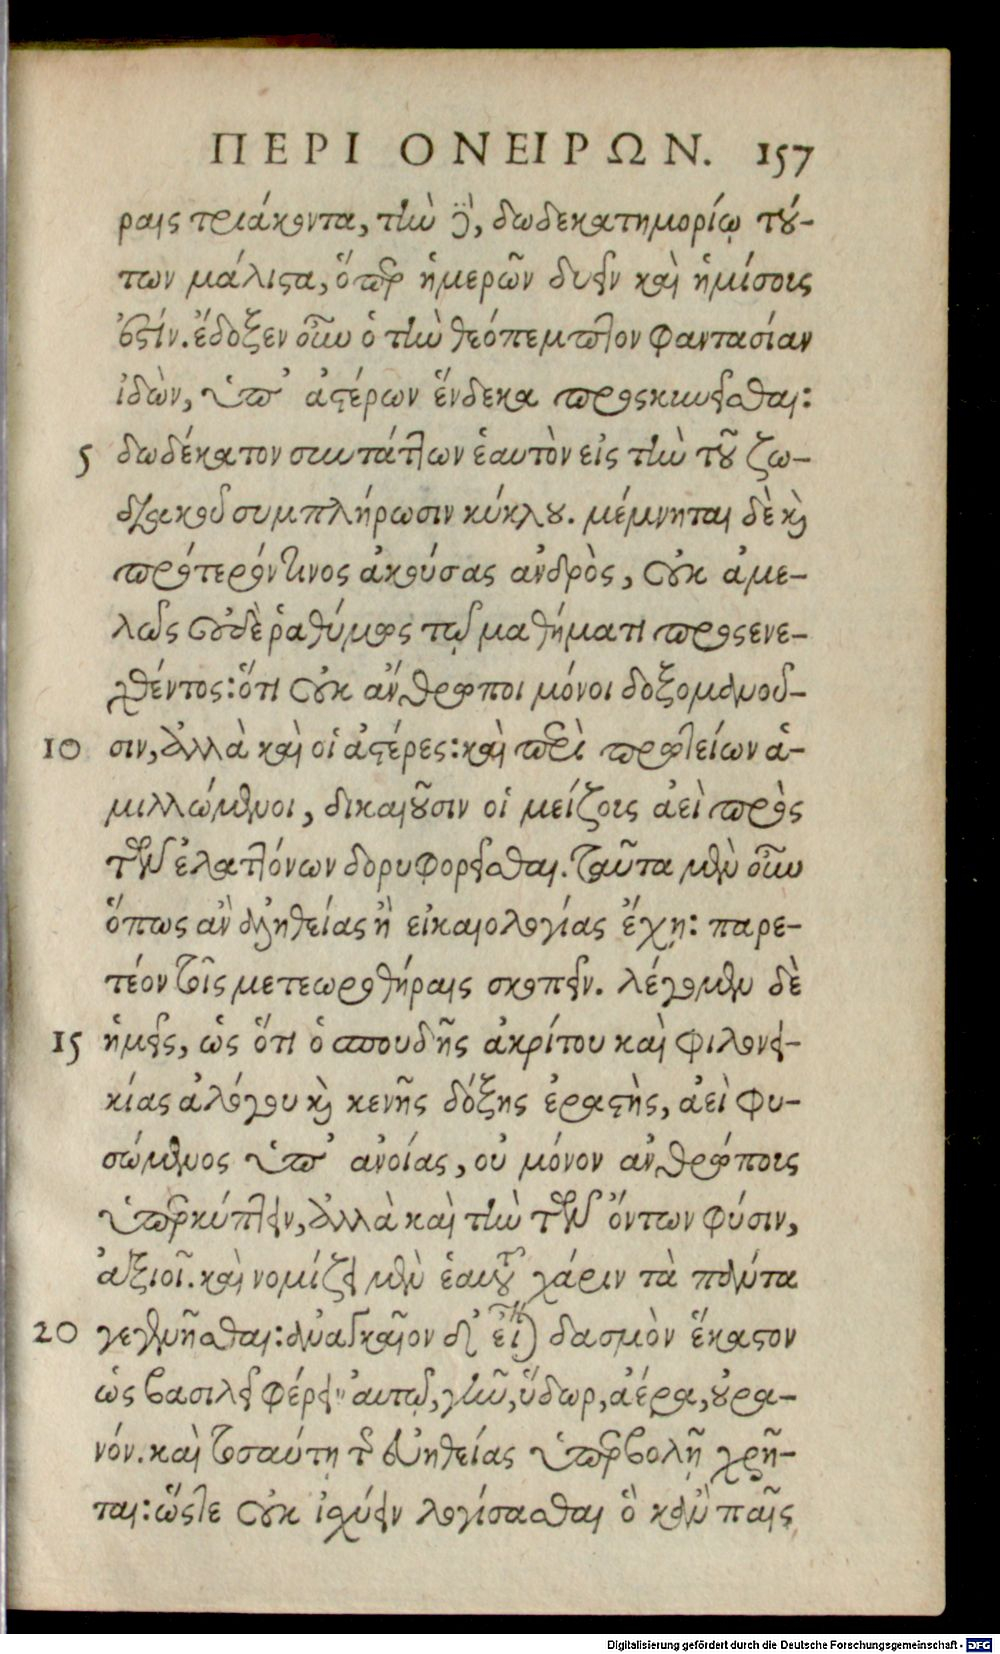 ΠΕΡΙ ΟΝΕΙΡΩΝ. 157
ραις τριάκοντα, τὴν δὲ, δωδεκατημορίῳ τού-
των μάλιστα, ὅπερ ἡμερῶν δυεῖν καὶ ἡμίσοις
ἐστίν. ἔδοξεν οὖν ὁ τὴν θεόπεμπτον φαντασίαν
ἰδὼν, ὑπ' ἀστέρων ἕνδεκα προσκυνεῖσθαι:
5 δωδέκατον συντάττων ἑαυτὸν εἰς τὴν τοῦ ζω-
διακοῦ συμπλήρωσιν κύκλου. μέμνηται δὲ καὶ
πρότερόν τινος ἀκούσας ἀνδρὸς, οὐκ ἀμε-
λῶς οὐδὲ ῥαθύμως τῷ μαθήματι προσενε-
χθέντος: ὅτι οὐκ ἄνθρωποι μόνοι δοξομανοῦ-
10 σιν, ἀλλὰ καὶ οἱ ἀστέρες: καὶ περὶ πρωτείων ἁ-
μιλλώμενοι, δικαιοῦσιν οἱ μείζοις ἀεὶ πρὸς
τῶν ἐλαττόνων δορυφορεῖσθαι. ταῦτα μὲν οὖν
ὅπως ἂν ἀληθείας ἢ εἰκαιολογίας ἔχῃ: παρε-
τέον τοῖς μετεωροθήραις σκοπεῖν. λέγομεν δὲ
15 ἡμεῖς, ὡς ὅτι ὁ σπουδῆς ἀκρίτου καὶ φιλονει-
κίας ἀλόγου καὶ κενῆς δόξης ἐραστὴς, ἀεὶ φυ-
σώμενος ὑπ' ἀνοίας, οὐ μόνον ἀνθρώποις
ὑπερκύπτειν, ἀλλὰ καὶ τὴν τῶν ὄντων φύσιν,
ἀξιοῖ. καὶ νομίζει μὲν ἑαυτοῦ χάριν τὰ πάντα
20 γεγενῆσθαι: ἀναγκαῖον δ' εἶναι δασμὸν ἕκαστον
ὡς βασιλεῖ φέρειν αὐτῷ, γῆν, ὕδωρ, ἀέρα, οὐρα-
νόν. καὶ τοσαύτῃ τῆς εὐηθείας ὑπερβολῇ χρῆ-
ται: ὥστε οὐκ ἰσχύειν λογίσασθαι ὃ κἂν παῖς
Digitalisierung gefördert durch die Deutsche Forschungsgemeinschaft - DFG